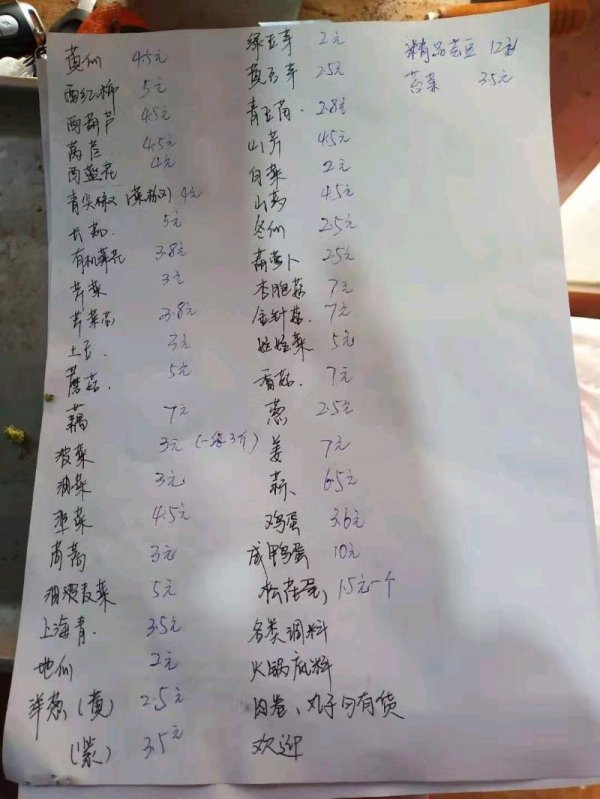 黄仙 4.5元
西红柿 5元
西葫芦 4.5元
莴苣 4.5元
西兰花 4元
青尖椒(菜椒) 4元
长茄 5元
有机菜花 3.8元
芹菜 3元
芹菜芯 3.8元
土豆 3元
蘑菇 5元
藕 7元
菠菜 3元(一袋3斤)
油菜 3元
韭菜 4.5元
茼蒿 3元
油麦菜 5元
上海青 3.5元
地仙 2元
洋葱(黄) 2.5元
(紫) 3.5元
绿豆芽 2元
黄豆芽 2.5元
青豆苗 2.8元
山芹 4.5元
白菜 2元
山药 4.5元
冬仙 2.5元
萝卜 2.5元
杏鲍菇 7元
金针菇 7元
娃娃菜 5元
香菇 7元
葱 2.5元
姜 7元
蒜 6.5元
鸡蛋 3.6元
咸鸭蛋 10元
松花蛋 1.5元一个
各类调料
火锅底料
肉卷、丸子均有货
欢迎
精品芸豆 12元
苔菜 3.5元